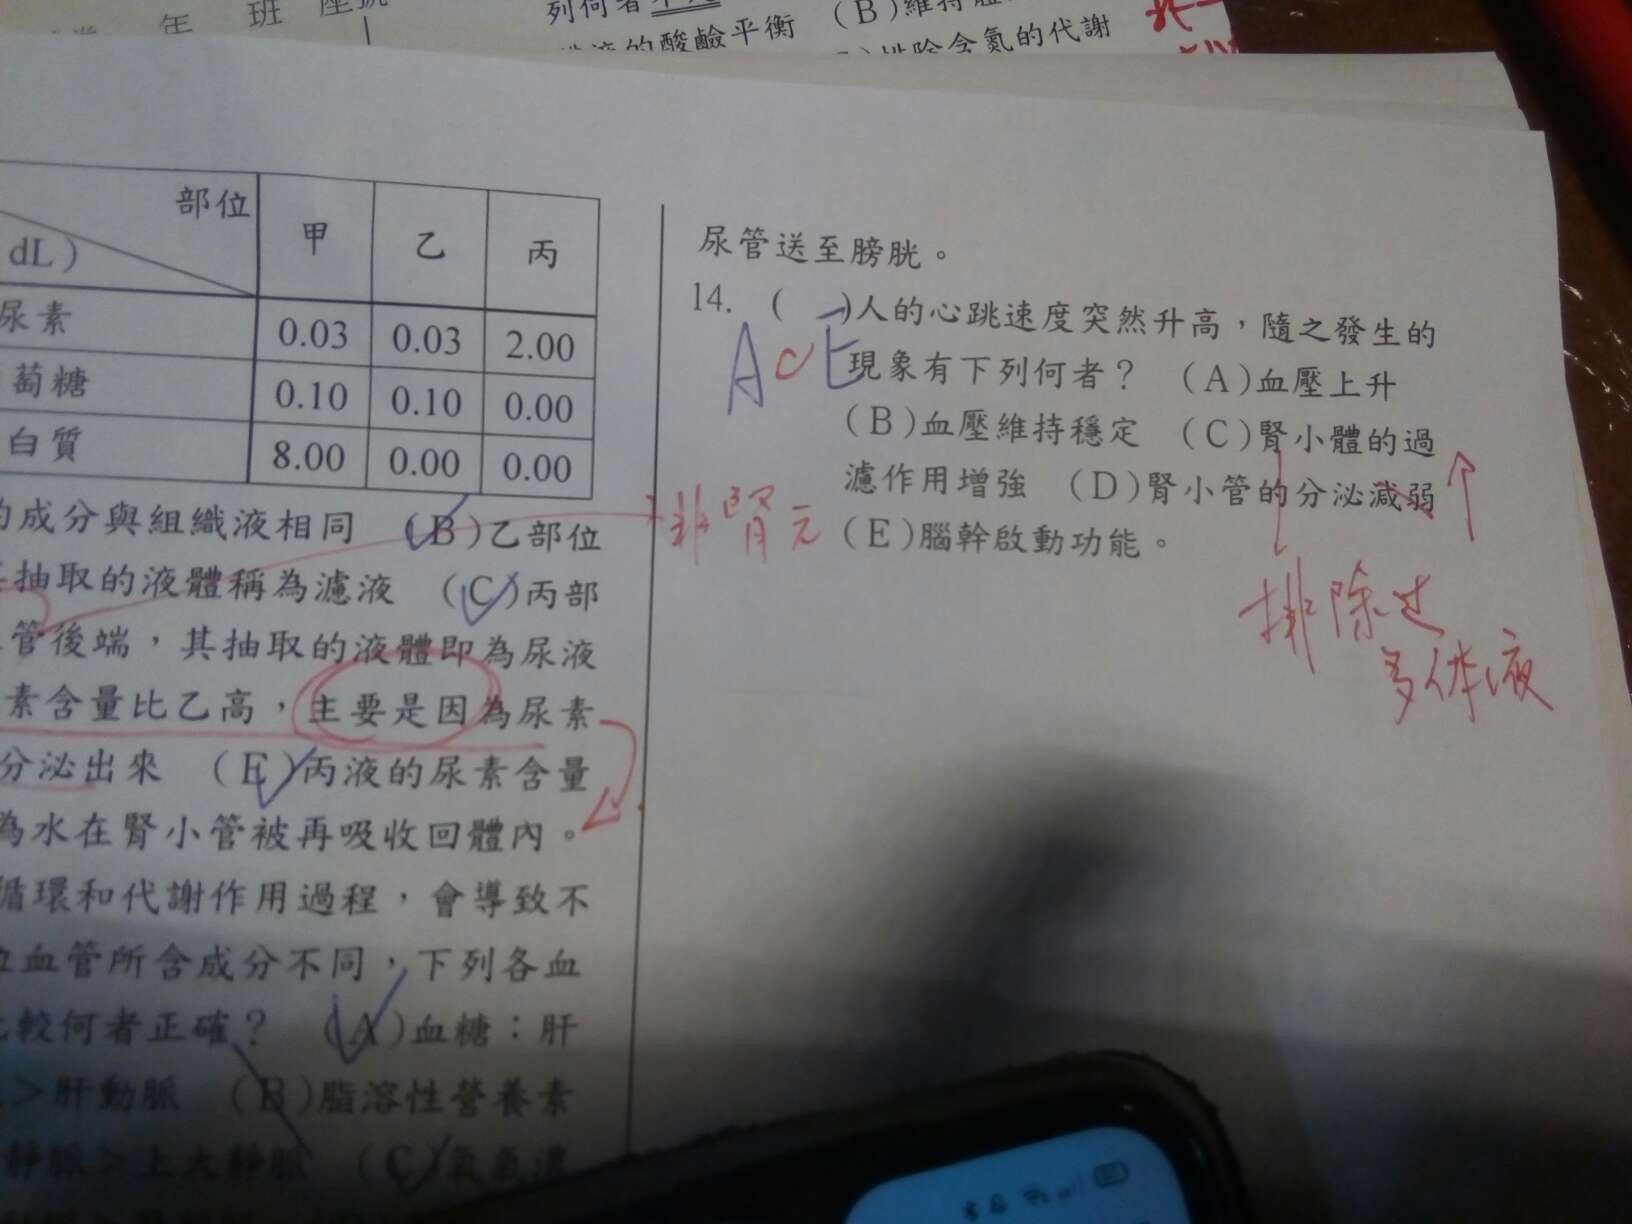 年 班 座號
列何者不
(B)維持體
的酸鹼平衡
排除含氮的代謝
部位
dL)
甲 乙 丙
尿素 0.03 0.03 2.00
萄糖 0.10 0.10 0.00
白質 8.00 0.00 0.00
的成分與組織液相同 (B)乙部位
其抽取的液體稱為濾液 (C)丙部
管後端，其抽取的液體即為尿液
素含量比乙高，主要是因為尿素
分泌出來 (E)丙液的尿素含量
為水在腎小管被再吸收回體內。
循環和代謝作用過程，會導致不
位血管所含成分不同，下列各血
比較何者正確？ (A)血糖：肝
＞肝動脈 (B)脂溶性營養素
靜脈＞上大靜脈 (C)氧氣濃
尿管送至膀胱。
14. ( )人的心跳速度突然升高，隨之發生的
ACE
現象有下列何者？ (A)血壓上升
(B)血壓維持穩定 (C)腎小體的過
濾作用增強 (D)腎小管的分泌減弱
(E)腦幹啟動功能。
非腎元
排除过
多体液